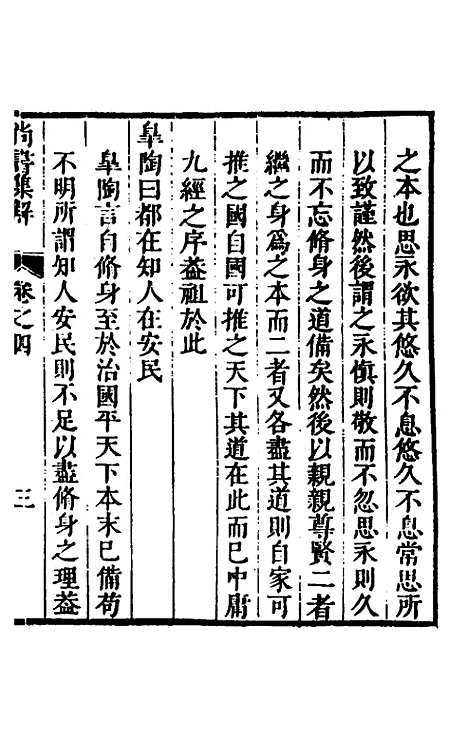 之本也思永欲其悠久不息悠久不息常思所
以致謹然後謂之永愼則敬而不忽思永則久
而不忘脩身之道備矣然後以親親尊賢二者
繼之身爲之本而二者又各盡其道則自家可
推之國自國可推之天下其道在此而已中庸
九經之序葢祖於此
臯陶曰都在知人在安民
臯陶言自脩身至於治國平天下本末已備苟
不明所謂知人安民則不足以盡脩身之理葢
尚書集解 卷之四 三